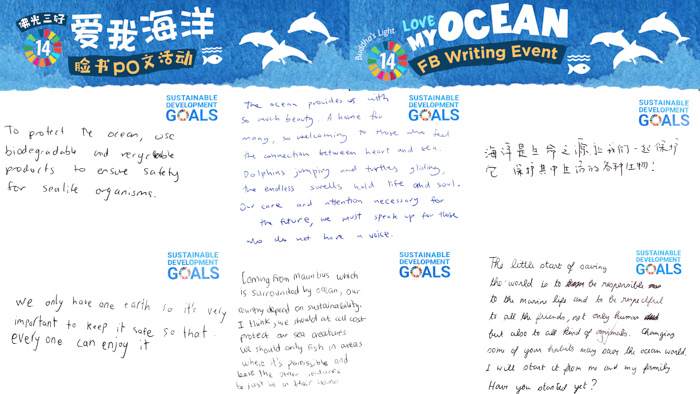 佛光三好
14
爱我海洋
脸书PO文活动
Buddha's Light
14
LOVE
MY OCEAN
FB Writing Event
SUSTAINABLE
DEVELOPMENT
GOALS
To protect the ocean, use
biodegradable and recyclable
products to ensure safety
for sealife organisms.
The ocean provides us with
so much beauty. A home for
many, so welcoming to those who feel
the connection between heart and sea.
Dolphins jumping and turtles gliding,
the endless swells hold life and soul.
Our care and attention necessary for
the future, we must speak up for those
who do not have a voice.
SUSTAINABLE
DEVELOPMENT
GOALS
海洋是生命之源让我们一起保护
它 保护其中生活的各种生物!
SUSTAINABLE
DEVELOPMENT
GOALS
We only have one earth so it's very
important to keep it safe so that
every one can enjoy it
SUSTAINABLE
DEVELOPMENT
GOALS
Coming from Mauritius which
is surrounded by ocean, our
country depend on sustainability.
I think, we should at all cost
protect our sea creatures
We should only fish in areas
where it's permissible and
leave the other creatures
to just be in their home
SUSTAINABLE
DEVELOPMENT
GOALS
The little start of saving
the world is to be responsible
to the marine life and to be respectful
to all the friends, not only human
but also to all kind of animals. Changing
some of your habits may save the ocean world.
I will start it from me and my family
Have you started yet?